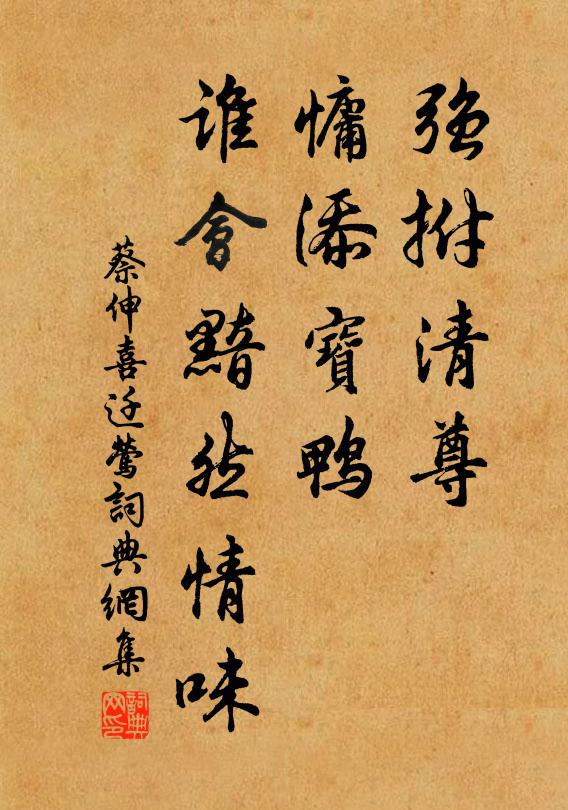 強拊清尊
慵添寶鴨
誰會黯然情味
蔡伸喜迁鶯詞典網集
詞典网印